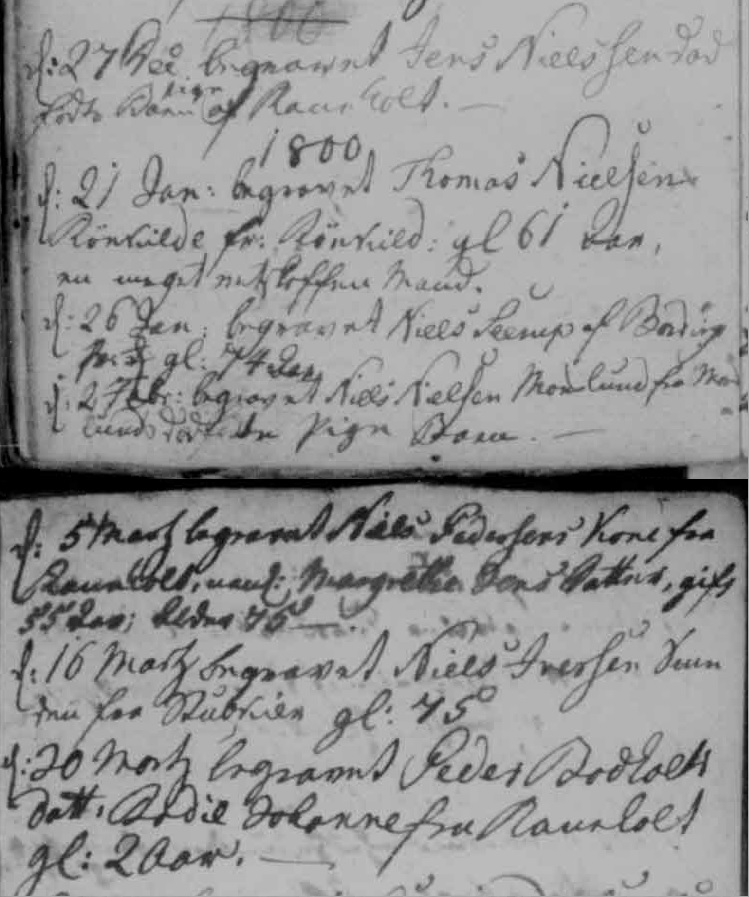 1800
d: 27 Dec begravet Jens Nielssen død
fødte Barn af Raunholt. —
1800
d: 21 Jan: begravet Thomas Nielsen
Rönkilde fr: Rönkild: gl 61 Aar,
en meget retskaffen Mand.
d: 26 Jan: begravet Niels Leerup af Bording
gl: 74 Aar
d: 2 Febr: begravet Niels Nielsen Morlund fra Mor
lunds dødfødte Pige Barn. —
d: 5 Martz begravet Niels Pedersens Kone fra
Raunholt, navnl: Margrethe Jens Datter, gift
55 Aar; Alder 75
d: 16 Martz begravet Niels Iversen
fra Stubkier gl: 75
d: 20 Martz begravet Peder Bodholts
datt: Bodil Johanne fra Raunholt
gl: 2 Aar. —